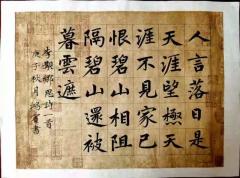 人言落日是
天涯望極天
涯不見家已
恨碧山相阻
隔碧山還被
暮雲遮
李覯鄉思詩一首
秋月 書